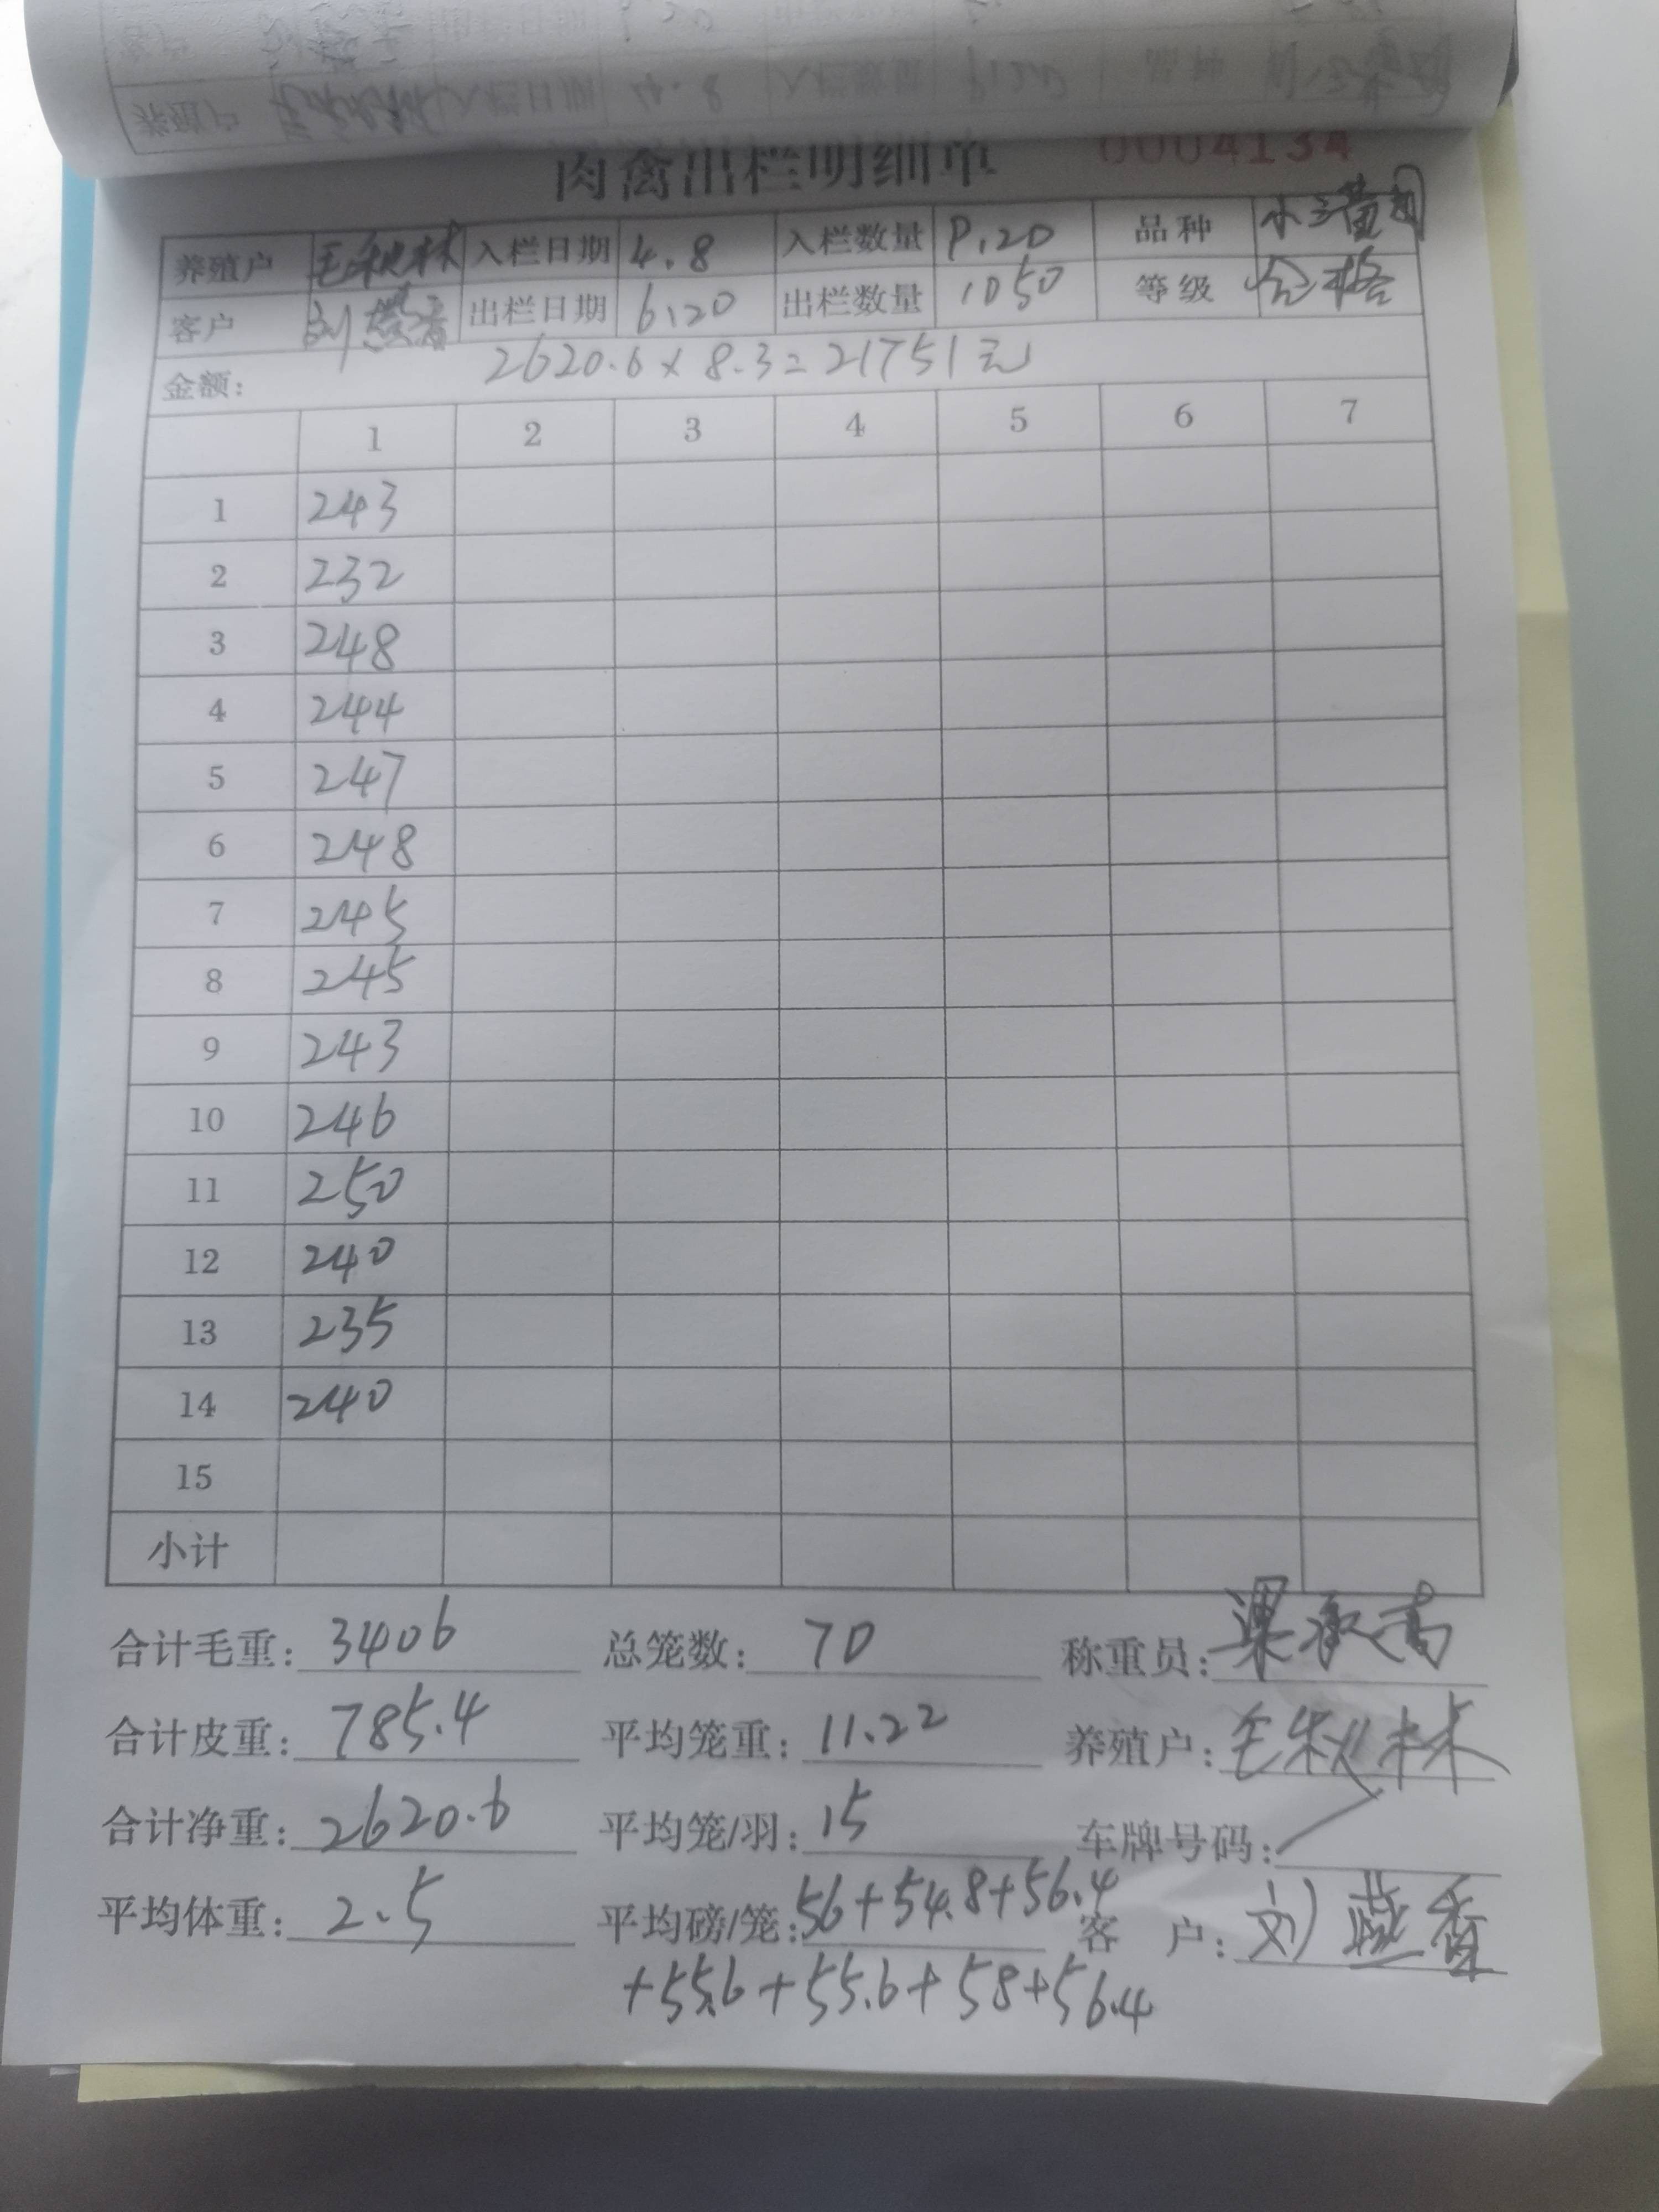 肉禽出栏明细单 0004134
养殖户 毛秋林 入栏日期 4.8 入栏数量 品种
客户 出栏日期 6.20 出栏数量 1050 等级 合格
金额: 2620.6×8.3=21751元
1 2 3 4 5 6 7
1 243
2 232
3 248
4 244
5 247
6 248
7 245
8 245
9 243
10 246
11 250
12 240
13 235
14 240
15
小计
合计毛重: 3406 总笼数: 70 称重员:
合计皮重: 785.4 平均笼重: 11.22 养殖户: 毛秋林
合计净重: 2620.6 平均笼/羽: 15 车牌号码:
平均体重: 2.5 平均磅/笼: 56+54.8+56.4 客 户: 刘燕香
+55.6+55.6+58+56.4